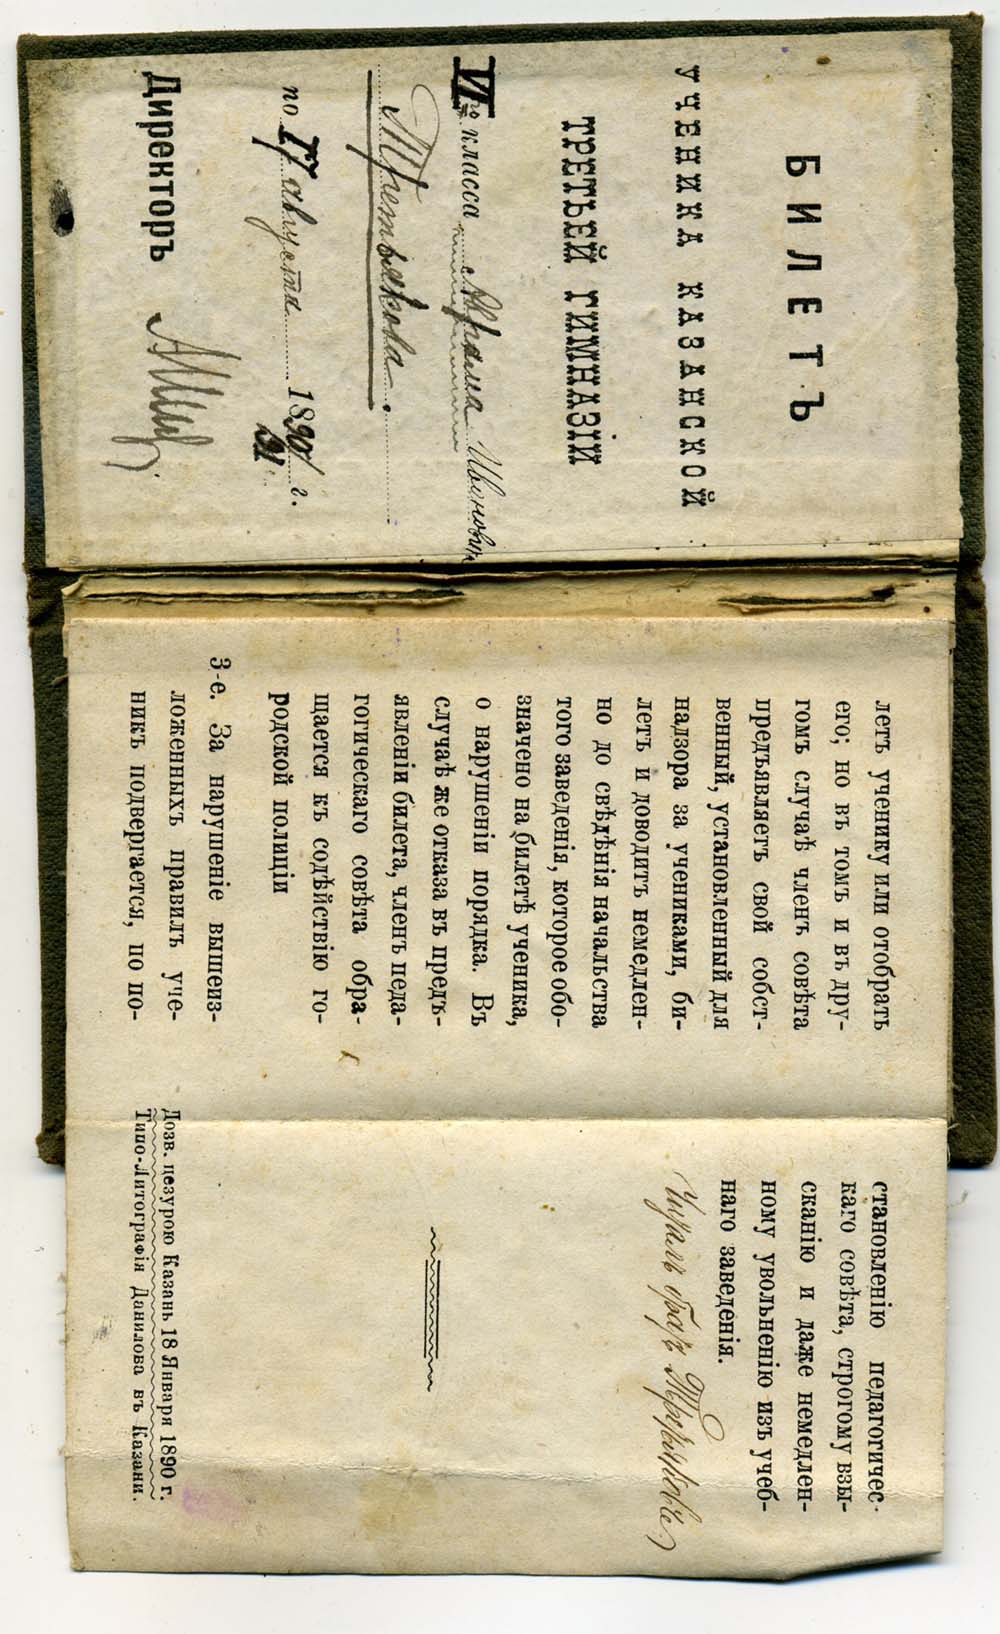 БИЛЕТЪ
УЧЕНИКА КАЗАНСКОЙ
ТРЕТЬЕЙ ГИМНАЗІИ
VIго класса Ивановича
Третьякова.
по 17 августа 1890/91 г.
Директоръ
летъ ученику или отобрать
его; но въ томъ и въ дру-
гомъ случаѣ членъ совѣта
предъявляетъ свой собст-
венный, установленный для
надзора за учениками, би-
летъ и доводитъ немедлен-
но до свѣдѣнія начальства
того заведенія, которое обо-
значено на билетѣ ученика,
о нарушеніи порядка. Въ
случаѣ же отказа въ предъ-
явленіи билета, членъ педа-
гогическаго совѣта обра-
щается къ содѣйствію го-
родской полиціи
3-е. За нарушеніе вышеиз-
ложенныхъ правилъ уче-
никъ подвергается, по по-
становленію педагогичес-
каго совѣта, строгому взы-
сканію и даже немедлен-
ному увольненію изъ учеб-
наго заведенія.
Читалъ
Дозв. цезурою Казань 18 Января 1890 г.
Типо-Литографія Данилова въ Казани.